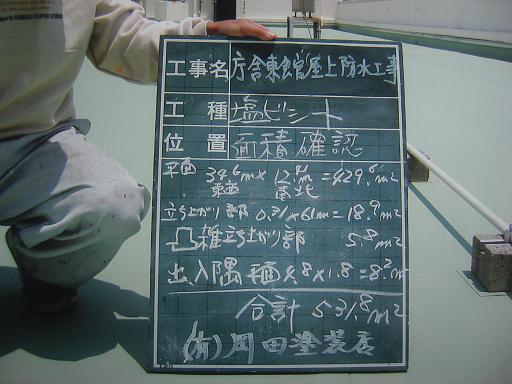 工事名 庁舎東館屋上防水工事
工種 塩ビシート
位置 面積確認
平面 34.6m×12.4m=429.6m2
東西 南北
立ち上がり部 0.31×61m=18.9m2
凸雑立ち上がり部 5.8m2
出入隅 8×1.8=8.2m2
合計 531.8m2
(有)岡田塗装店